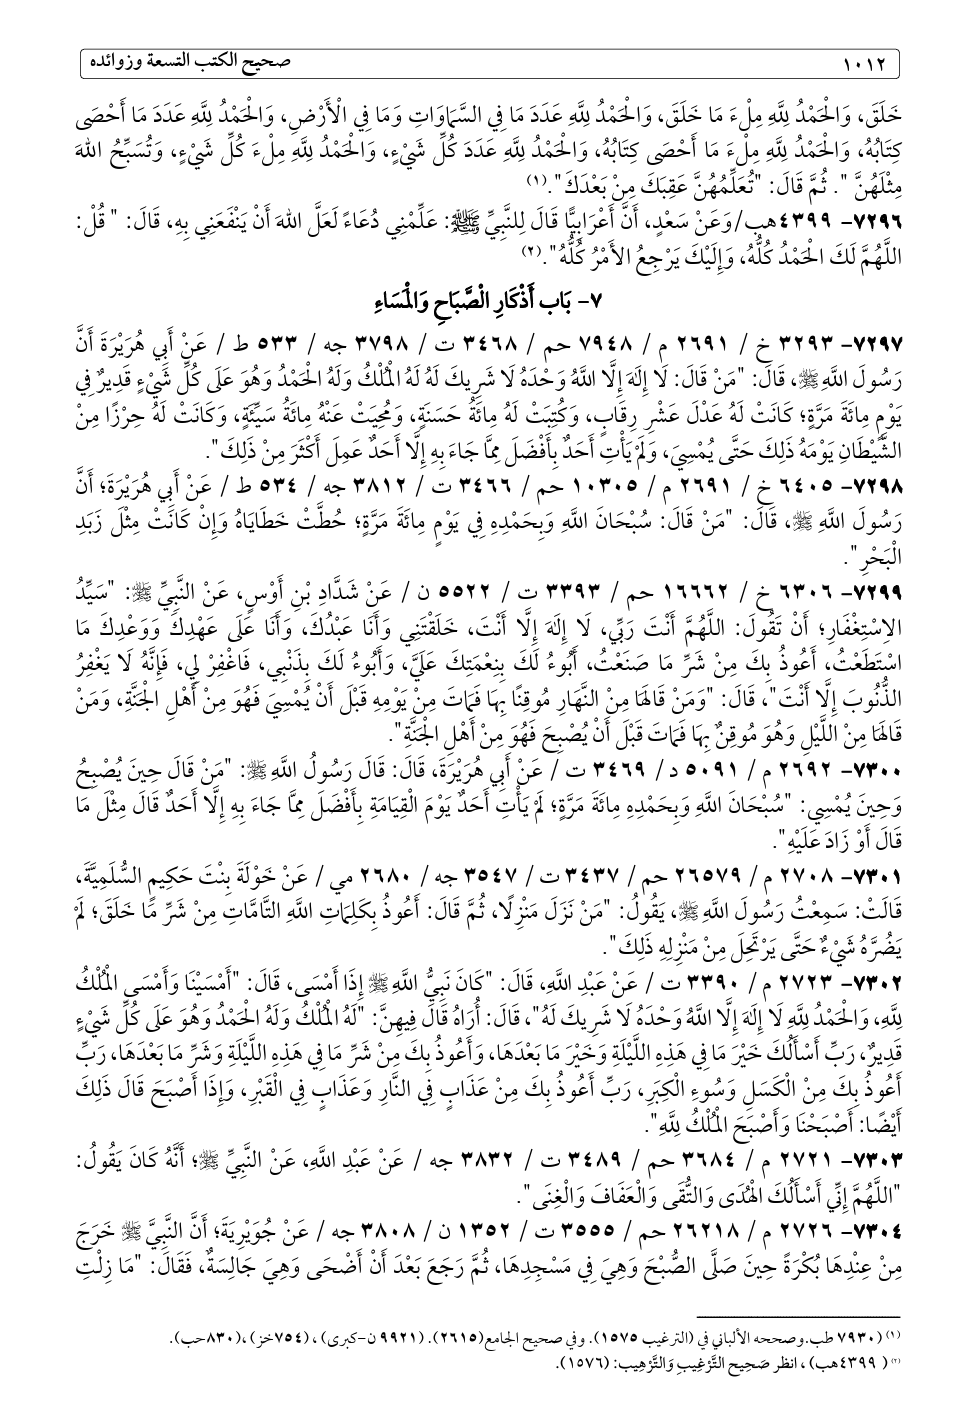 ١٠١٢ صحيح الكتب التسعة وزوائده
خَلَقَ، وَالْحَمْدُ لِلَّهِ مِلْءَ مَا خَلَقَ، وَالْحَمْدُ لِلَّهِ عَدَدَ مَا فِي السَّمَاوَاتِ وَمَا فِي الْأَرْضِ، وَالْحَمْدُ لِلَّهِ عَدَدَ مَا أَحْصَى
كِتَابُهُ، وَالْحَمْدُ لِلَّهِ مِلْءَ مَا أَحْصَى كِتَابُهُ، وَالْحَمْدُ لِلَّهِ عَدَدَ كُلِّ شَيْءٍ، وَالْحَمْدُ لِلَّهِ مِلْءَ كُلِّ شَيْءٍ، وَتُسَبِّحُ اللهَ
مِثْلَهُنَّ ". ثُمَّ قَالَ: "تُعَلِّمُهُنَّ عَقِبَكَ مِنْ بَعْدَكَ".(١)
٧٢٩٦- ٤٣٩٩هب/وَعَنْ سَعْدٍ، أَنَّ أَعْرَابِيًّا قَالَ لِلنَّبِيِّ ﷺ: عَلِّمْنِي دُعَاءً لَعَلَّ اللهَ أَنْ يَنْفَعَنِي بِهِ، قَالَ: " قُلْ:
اللَّهُمَّ لَكَ الْحَمْدُ كُلُّهُ، وَإِلَيْكَ يَرْجِعُ الأَمْرُ كُلُّهُ".(٢)
٧- بَاب أَذْكَارِ الْصَّبَاحِ وَالْمَسَاءِ
٧٢٩٧- ٣٢٩٣ خ / ٢٦٩١ م / ٧٩٤٨ حم / ٣٤٦٨ ت / ٣٧٩٨ جه / ٥٣٣ ط / عَنْ أَبِي هُرَيْرَةَ أَنَّ
رَسُولَ اللَّهِ ﷺ، قَالَ: "مَنْ قَالَ: لَا إِلَهَ إِلَّا اللَّهُ وَحْدَهُ لَا شَرِيكَ لَهُ لَهُ الْمُلْكُ وَلَهُ الْحَمْدُ وَهُوَ عَلَى كُلِّ شَيْءٍ قَدِيرٌ فِي
يَوْمٍ مِائَةَ مَرَّةٍ؛ كَانَتْ لَهُ عَدْلَ عَشْرِ رِقَابٍ، وَكُتِبَتْ لَهُ مِائَةُ حَسَنَةٍ، وَمُحِيَتْ عَنْهُ مِائَةُ سَيِّئَةٍ، وَكَانَتْ لَهُ حِرْزًا مِنْ
الشَّيْطَانِ يَوْمَهُ ذَلِكَ حَتَّى يُمْسِيَ، وَلَمْ يَأْتِ أَحَدٌ بِأَفْضَلَ مِمَّا جَاءَ بِهِ إِلَّا أَحَدٌ عَمِلَ أَكْثَرَ مِنْ ذَلِكَ".
٧٢٩٨- ٦٤٠٥ خ / ٢٦٩١ م / ١٠٣٠٥ حم / ٣٤٦٦ ت / ٣٨١٢ جه / ٥٣٤ ط / عَنْ أَبِي هُرَيْرَةَ؛ أَنَّ
رَسُولَ اللَّهِ ﷺ، قَالَ: "مَنْ قَالَ: سُبْحَانَ اللَّهِ وَبِحَمْدِهِ فِي يَوْمٍ مِائَةَ مَرَّةٍ؛ حُطَّتْ خَطَايَاهُ وَإِنْ كَانَتْ مِثْلَ زَبَدِ
الْبَحْرِ".
٧٢٩٩- ٦٣٠٦ خ / ١٦٦٦٢ حم / ٣٣٩٣ ت / ٥٥٢٢ ن / عَنْ شَدَّادِ بْنِ أَوْسٍ، عَنْ النَّبِيِّ ﷺ: "سَيِّدُ
الِاسْتِغْفَارِ؛ أَنْ تَقُولَ: اللَّهُمَّ أَنْتَ رَبِّي، لَا إِلَهَ إِلَّا أَنْتَ، خَلَقْتَنِي وَأَنَا عَبْدُكَ، وَأَنَا عَلَى عَهْدِكَ وَوَعْدِكَ مَا
اسْتَطَعْتُ، أَعُوذُ بِكَ مِنْ شَرِّ مَا صَنَعْتُ، أَبُوءُ لَكَ بِنِعْمَتِكَ عَلَيَّ، وَأَبُوءُ لَكَ بِذَنْبِي، فَاغْفِرْ لِي، فَإِنَّهُ لَا يَغْفِرُ
الذُّنُوبَ إِلَّا أَنْتَ"، قَالَ: "وَمَنْ قَالَهَا مِنْ النَّهَارِ مُوقِنًا بِهَا فَمَاتَ مِنْ يَوْمِهِ قَبْلَ أَنْ يُمْسِيَ فَهُوَ مِنْ أَهْلِ الْجَنَّةِ، وَمَنْ
قَالَهَا مِنْ اللَّيْلِ وَهُوَ مُوقِنٌ بِهَا فَمَاتَ قَبْلَ أَنْ يُصْبِحَ فَهُوَ مِنْ أَهْلِ الْجَنَّةِ".
٧٣٠٠- ٢٦٩٢ م / ٥٠٩١ د/ ٣٤٦٩ ت / عَنْ أَبِي هُرَيْرَةَ، قَالَ: قَالَ رَسُولُ اللَّهِ ﷺ: "مَنْ قَالَ حِينَ يُصْبِحُ
وَحِينَ يُمْسِي: "سُبْحَانَ اللَّهِ وَبِحَمْدِهِ مِائَةَ مَرَّةٍ؛ لَمْ يَأْتِ أَحَدٌ يَوْمَ الْقِيَامَةِ بِأَفْضَلَ مِمَّا جَاءَ بِهِ إِلَّا أَحَدٌ قَالَ مِثْلَ مَا
قَالَ أَوْ زَادَ عَلَيْهِ".
٧٣٠١- ٢٧٠٨ م / ٢٦٥٧٩ حم / ٣٤٣٧ ت / ٣٥٤٧ جه / ٢٦٨٠ مي / عَنْ خَوْلَةَ بِنْتَ حَكِيمٍ السُّلَمِيَّةَ،
قَالَتْ: سَمِعْتُ رَسُولَ اللَّهِ ﷺ، يَقُولُ: "مَنْ نَزَلَ مَنْزِلًا، ثُمَّ قَالَ: أَعُوذُ بِكَلِمَاتِ اللَّهِ التَّامَّاتِ مِنْ شَرِّ مَا خَلَقَ؛ لَمْ
يَضُرَّهُ شَيْءٌ حَتَّى يَرْتَحِلَ مِنْ مَنْزِلِهِ ذَلِكَ".
٧٣٠٢- ٢٧٢٣ م / ٣٣٩٠ ت / عَنْ عَبْدِ اللَّهِ، قَالَ: "كَانَ نَبِيُّ اللَّهِ ﷺ إِذَا أَمْسَى، قَالَ: "أَمْسَيْنَا وَأَمْسَى الْمُلْكُ
لِلَّهِ، وَالْحَمْدُ لِلَّهِ لَا إِلَهَ إِلَّا اللَّهُ وَحْدَهُ لَا شَرِيكَ لَهُ"، قَالَ: أُرَاهُ قَالَ فِيهِنَّ: "لَهُ الْمُلْكُ وَلَهُ الْحَمْدُ وَهُوَ عَلَى كُلِّ شَيْءٍ
قَدِيرٌ، رَبِّ أَسْأَلُكَ خَيْرَ مَا فِي هَذِهِ اللَّيْلَةِ وَخَيْرَ مَا بَعْدَهَا، وَأَعُوذُ بِكَ مِنْ شَرِّ مَا فِي هَذِهِ اللَّيْلَةِ وَشَرِّ مَا بَعْدَهَا، رَبِّ
أَعُوذُ بِكَ مِنْ الْكَسَلِ وَسُوءِ الْكِبَرِ، رَبِّ أَعُوذُ بِكَ مِنْ عَذَابٍ فِي النَّارِ وَعَذَابٍ فِي الْقَبْرِ، وَإِذَا أَصْبَحَ قَالَ ذَلِكَ
أَيْضًا: أَصْبَحْنَا وَأَصْبَحَ الْمُلْكُ لِلَّهِ".
٧٣٠٣- ٢٧٢١ م / ٣٦٨٤ حم / ٣٤٨٩ ت / ٣٨٣٢ جه / عَنْ عَبْدِ اللَّهِ، عَنْ النَّبِيِّ ﷺ؛ أَنَّهُ كَانَ يَقُولُ:
"اللَّهُمَّ إِنِّي أَسْأَلُكَ الْهُدَى وَالتُّقَى وَالْعَفَافَ وَالْغِنَى".
٧٣٠٤- ٢٧٢٦ م / ٢٦٢١٨ حم / ٣٥٥٥ ت / ١٣٥٢ ن / ٣٨٠٨ جه / عَنْ جُوَيْرِيَةَ؛ أَنَّ النَّبِيَّ ﷺ خَرَجَ
مِنْ عِنْدِهَا بُكْرَةً حِينَ صَلَّى الصُّبْحَ وَهِيَ فِي مَسْجِدِهَا، ثُمَّ رَجَعَ بَعْدَ أَنْ أَضْحَى وَهِيَ جَالِسَةٌ، فَقَالَ: "مَا زِلْتِ
(١) (٧٩٣٠ طب.وصححه الألباني في (الترغيب ١٥٧٥). وفي صحيح الجامع(٢٦١٥). (٩٩٢١ ن-كبرى) ، (٧٥٤خز) ،(٨٣٠حب).
(٢) ( ٤٣٩٩هب) ، انظر صَحِيح التَّرْغِيبِ وَالتَّرْهِيب: (١٥٧٦).